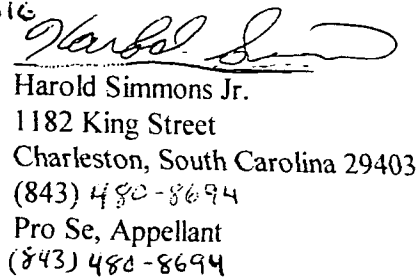 Harold Simmons Jr.
1182 King Street
Charleston, South Carolina 29403
(843) 480-8694
Pro Se, Appellant
(843) 480-8694